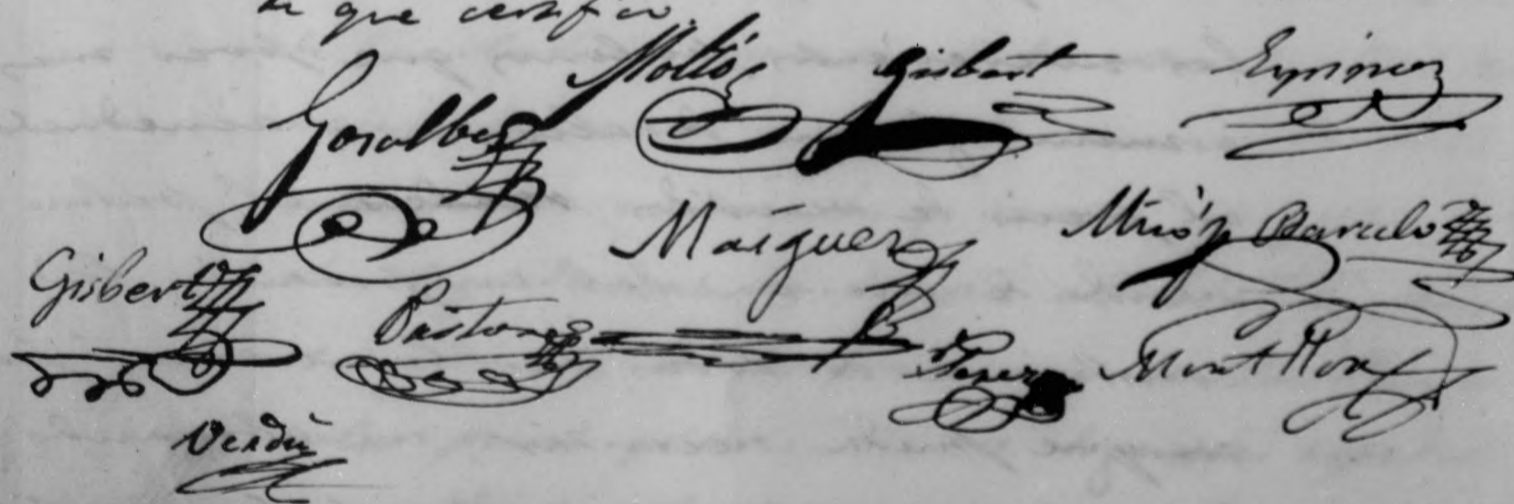 de que certifico.
Gosalbez Moltó Gisbert Espinoz
Gisbert Maiguez Miró y Barceló
Pastor Perez Montllor
Verdú